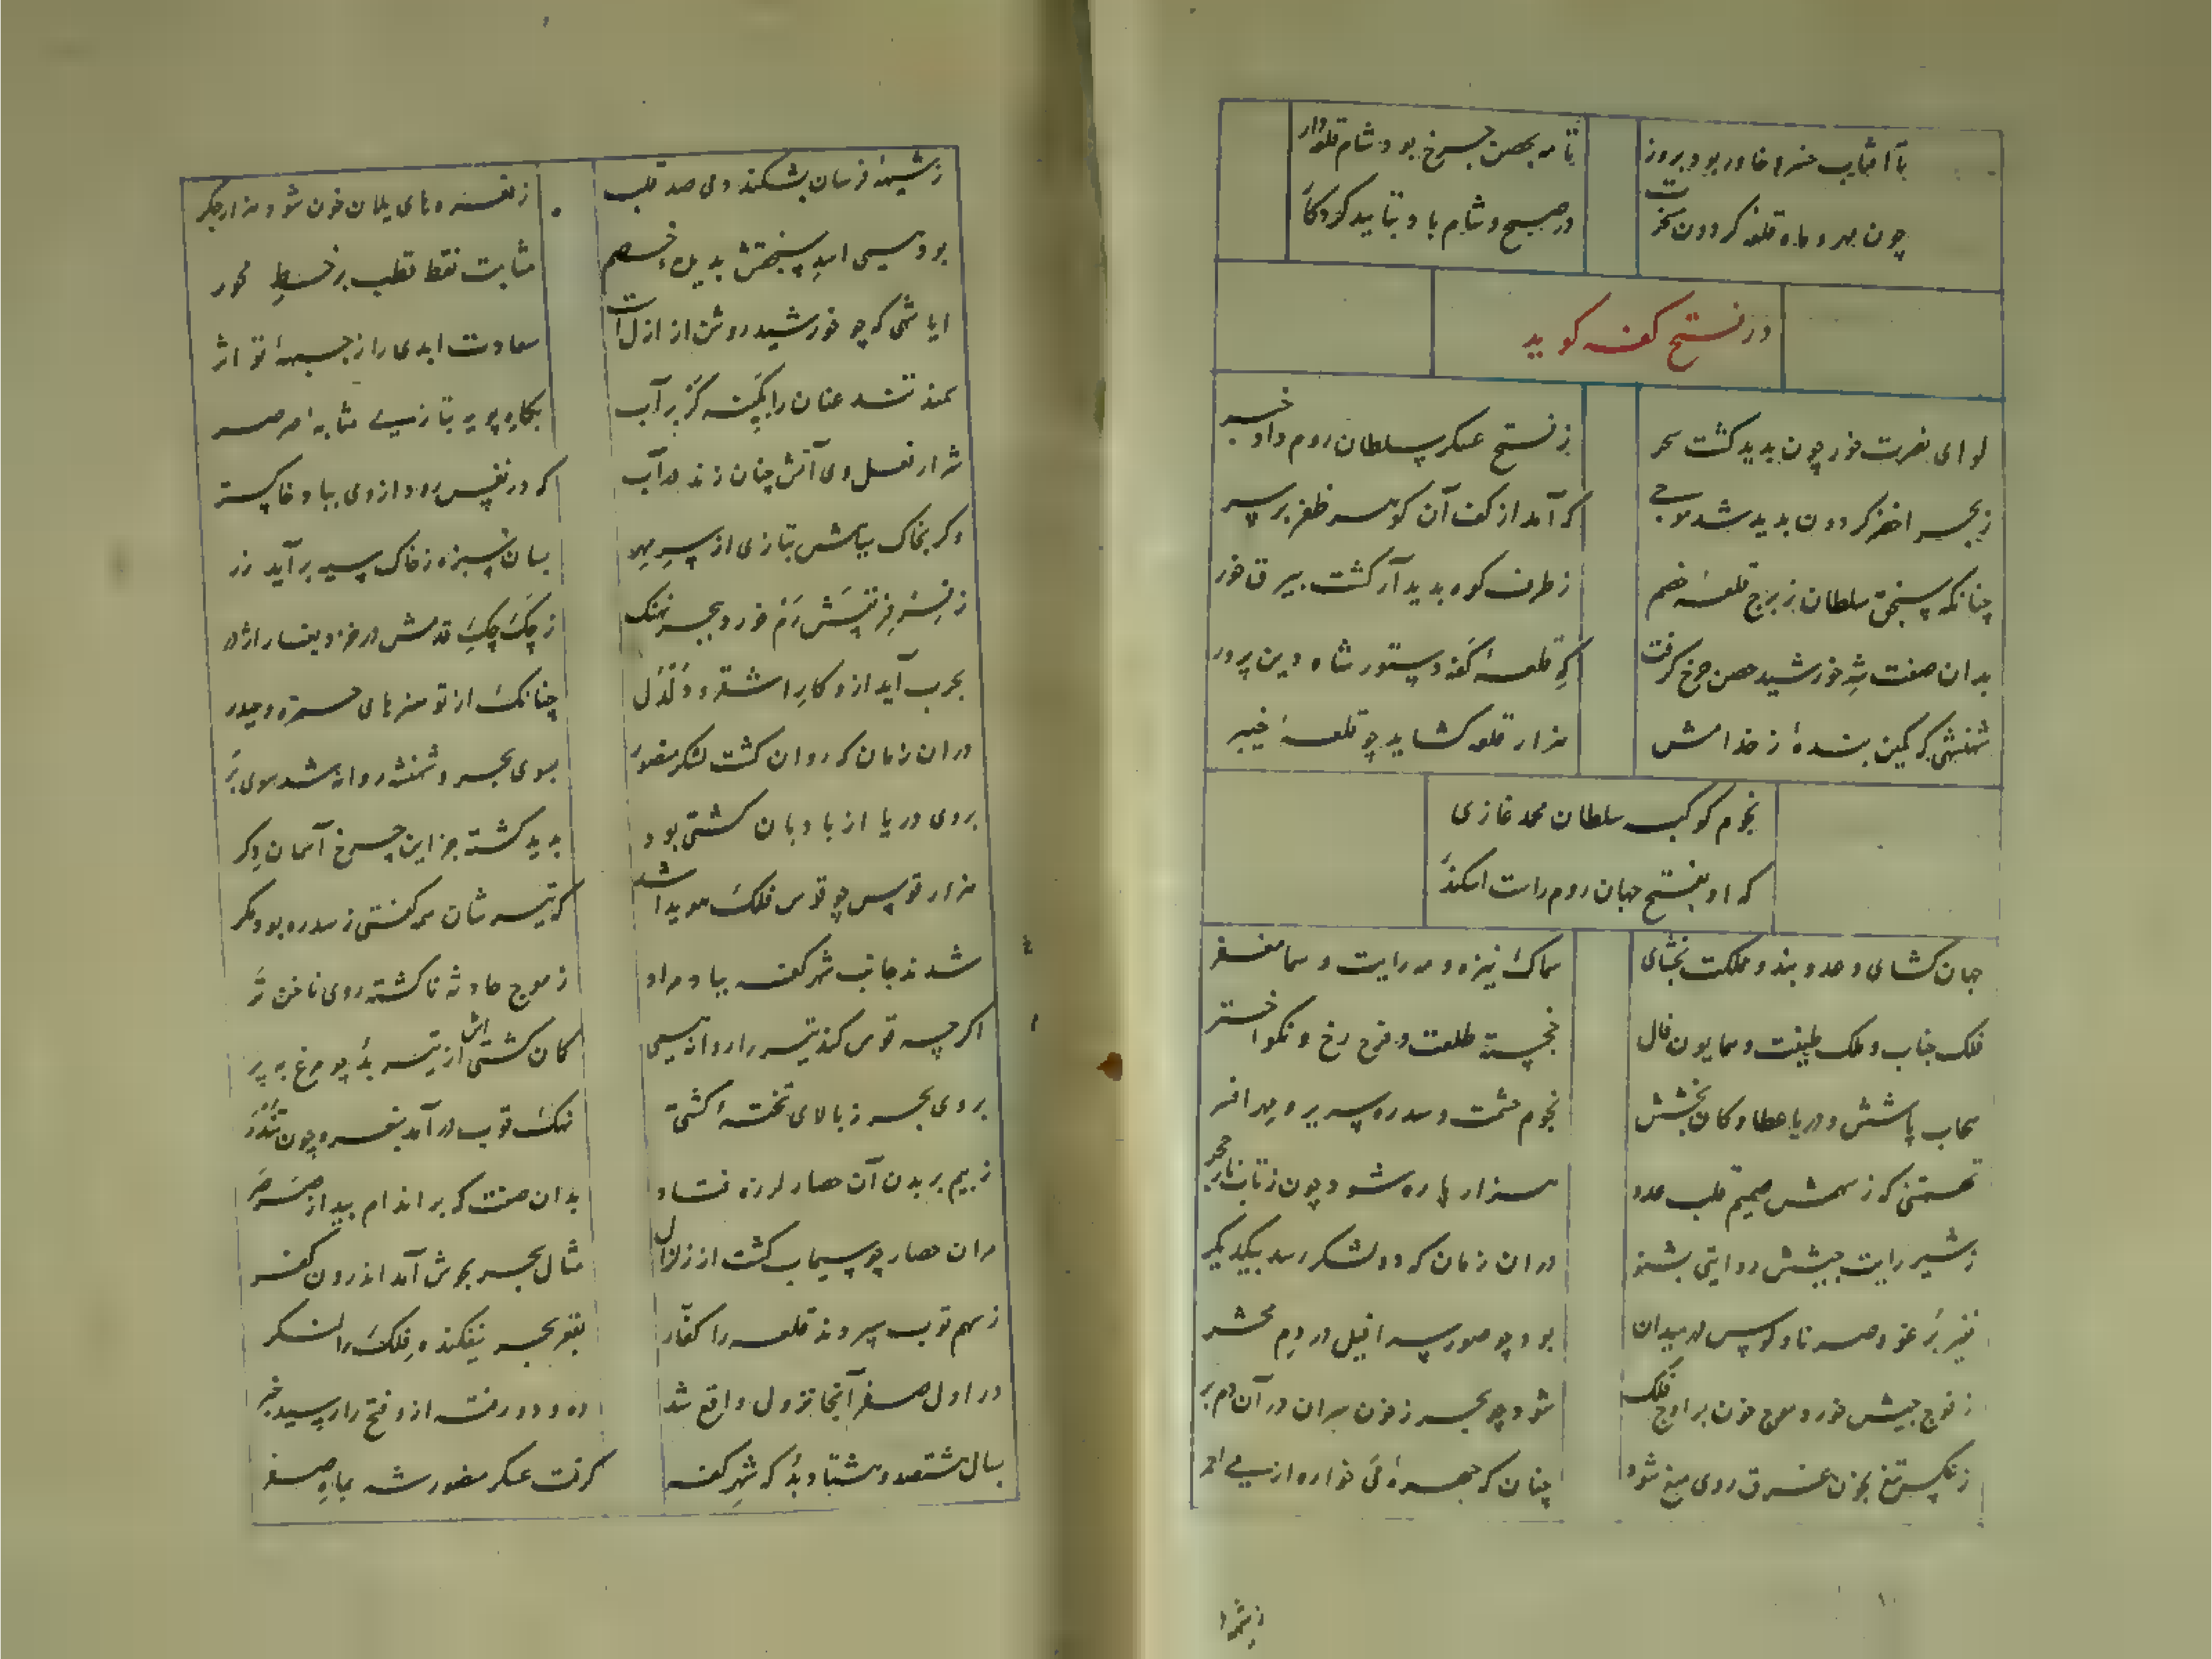 تا آفتاب خسرو خاور بود بروز
تا مه بحصن چرخ بود شام قلعه‌دار
چون مهر و ماه قلعه گردون
در صبح و شام باد بتایید کردگار
در فتح کفه گوید
لوای نصرت خور چون بدید گشت سحر
ز فتح عسکر سلطان روم داد خبر
ز بحر اخضر گردون بدید شد موجی
که آمد از کف آن گوهر ظفر بر سر
چنانکه سنجق سلطان ز برج قلعه خصم
ز طرف کوه بدیدار گشت بیرق خور
بدان صفت شه خورشید حصن چرخ گرفت
که قلعه کفه دستور شاه دین پرور
شهنشهی که کمین بنده ز خدامش
هزار قلعه گشاید چو قلعه خیبر
نجوم کوکب سلطان محمد غازی
که او بفتح جهان روم راست اسکندر
جهان گشای و عدو بند و مملکت بخشای
سماک نیزه و مه رایت و سما مغفر
فلک جناب و ملک طینت و همایون فال
خجسته طلعت و فرخ رخ و نکو اختر
سحاب پاشش و دریا عطا و کان بخشش
نجوم حشمت و سدره سریر و مهر افسر
تهمتنی که ز سهمش صمیم قلب عدو
هزار پاره شود چون ز تاب نار حجر
ز شیر رایت جیشش روایتی بشنو
در آن زمان که دو لشکر رسد بیکدیگر
نفیر برغو و صرنا و کوس در میدان
بود چو صور سرافیل در دم محشر
ز فوج جیش خورد موج خون بر اوج فلک
شود چو بحر ز خون سران در آن دم بر
ز عکس تیغ بخون غرق روی میغ شود
چنان که چهره می خواره از می احمر
ز شیهه فرسان بشکند دمی صد قلب
ز نعره‌های یلان خون شود هزار جگر
بود سهی اسد سنجقش بدیده خصم
مثابت نقط قطب بر خط محور
ایا شهی که چو خورشید روشن از ازل است
سعادت ابدی را ز جبهه تو اثر
سمند تند عنان را
بکاه پویه بتازی مشابه صرصر
شرار نعل وی آتش چنان زند در آب
که در نفس رود از وی بباد خاکستر
وگر بخاک سیاهش بتازی از سر مهر
بسان سبزه ز خاک سیه برآید زر
رم خورد ببحر نهنگ
قدمش در خزد بغار اژدر
بحرب آید ازو کار اشقر و دلدل
چنانکه از تو هنرهای حمزه و حیدر
در آن زمان که روان گشت لشکر منصور
بسوی بحر و شهنشه روانه شد سوی بر
بروی دریا از بادبان کشتی بود
بدید گشته جز این چرخ آسمان دگر
هزار قوس چو قوس فلک هویدا شد
که تیر شان همه گفتی ز سدره بود مگر
شدند جانب شهر کفه بباد مراد
ز موج حادثه ناگشته روی ناخن تر
اگر چه قوس کند تیر را روانه همی
کان کشتی‌اش از تیر بد چو مرغ به پر
بروی بحر ز بالای تخته کشتی
نهنگ توپ درآمد بنعره چون تندر
ز بیم بر بدن آن حصار لرزه فتاد
بدان صفت که بر اندام بید از صرصر
در آن حصار چو سیماب گشت از زلزال
مثال بحر بجوش آمد اندرون کفه
ز سهم توپ سپردند قلعه را کفار
بقعر بحر بیفکند فلک را لنگر
در اول صفر آنجا نزول واقع شد
ده و دو رفت ازو فتح را رسید خبر
بسال هشتصد و هشتاد بد که شهر کفه
گرفت عسکر منصور شه بماه صفر